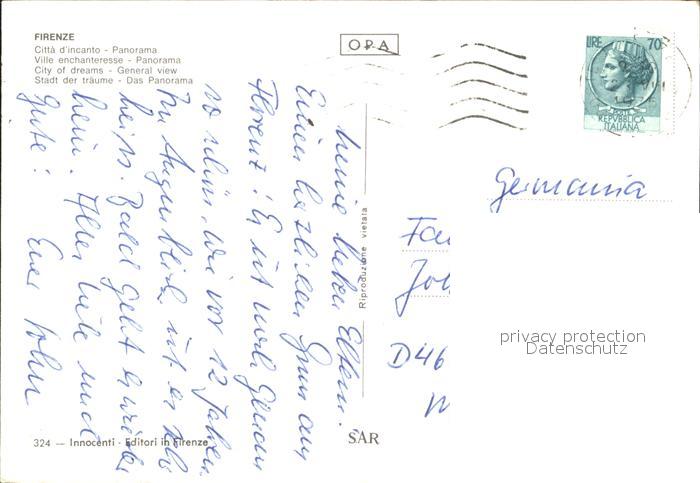 FIRENZE
Città d'incanto - Panorama
Ville enchanteresse - Panorama
City of dreams - General view
Stadt der träume - Das Panorama
OPA
LIRE 70
POSTE
REPVBBLICA
ITALIANA
Meine lieben Eltern.
Einen herzlichen Gruss aus
Florenz! Es ist noch genau
so schön, wie vor 12 Jahren.
Im Augenblick ist es
heiss. Bald geht es wieder
heim. Alles liebe und
gute! Euer Sohn
Riproduzione vietata
Germania
D46
privacy protection
Datenschutz
324 — Innocenti - Editori in Firenze
SAR